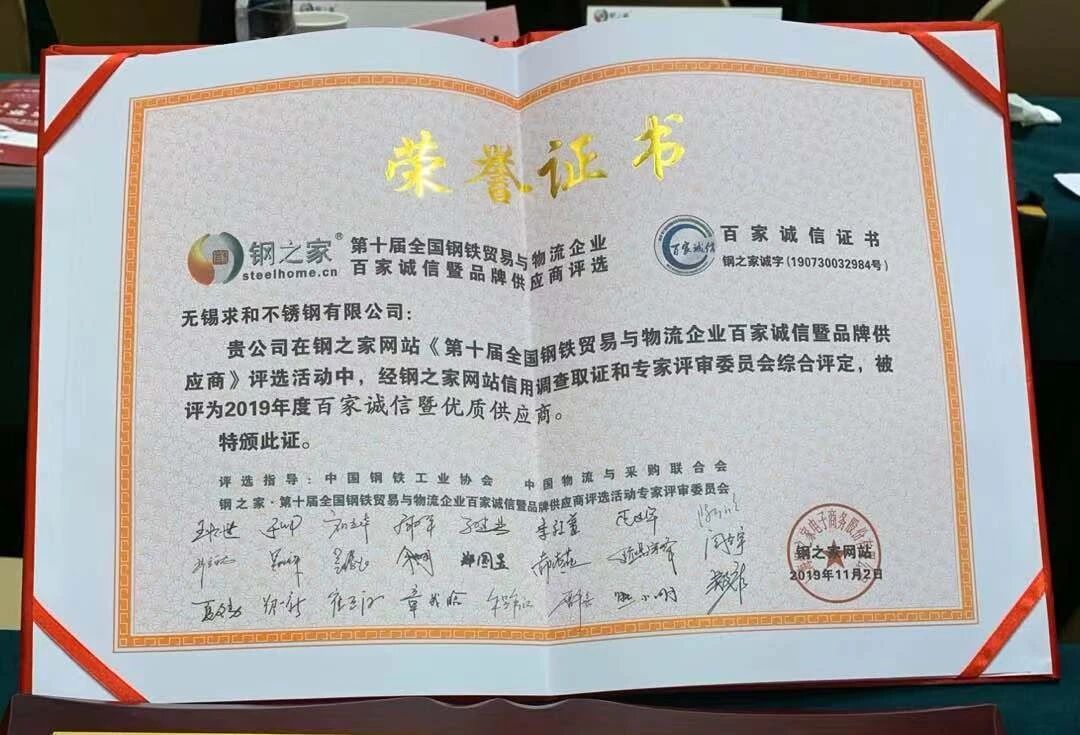 荣誉证书
钢之家®
steelhome.cn
第十届全国钢铁贸易与物流企业
百家诚信暨品牌供应商评选
百家诚信
百家诚信证书
钢之家诚字(190730032984号)
无锡求和不锈钢有限公司：
贵公司在钢之家网站《第十届全国钢铁贸易与物流企业百家诚信暨品牌供
应商》评选活动中，经钢之家网站信用调查取证和专家评审委员会综合评定，被
评为2019年度百家诚信暨优质供应商。
特颁此证。
评选指导：中国钢铁工业协会 中国物流与采购联合会
钢之家·第十届全国钢铁贸易与物流企业百家诚信暨品牌供应商评选活动专家评审委员会
家电子商务股份有
钢之家网站
2019年11月2日